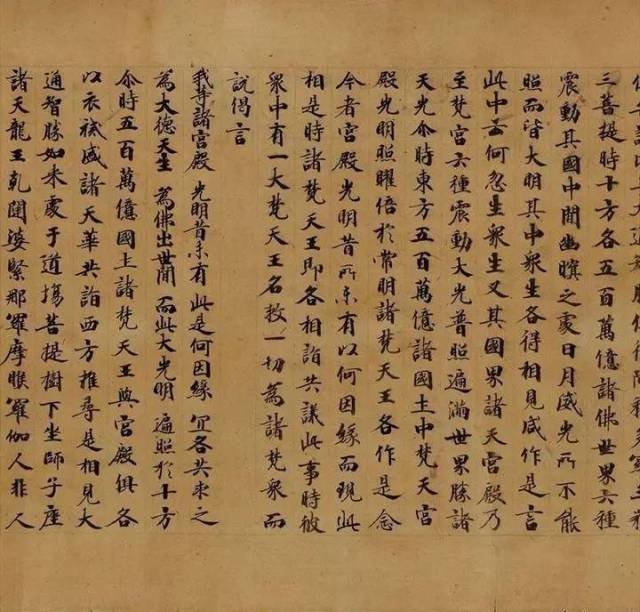 三菩提時十方各五百萬億諸佛世界六種
震動其國中間幽暝之處日月威光所不能
照而皆大明其中衆生各得相見咸作是言
此中云何忽生衆生又其國界諸天宮殿乃
至梵宮六種震動大光普照遍滿世界勝諸
天光尒時東方五百萬億諸國土中梵天宮
殿光明照曜倍於常明諸梵天王各作是念
今者宮殿光明昔所未有以何因緣而現此
相是時諸梵天王即各相詣共議此事時彼
衆中有一大梵天王名救一切為諸梵衆而
說偈言
我等諸宮殿 光明昔未有 此是何因緣 冝各共求之
為大德天生 為佛出世間 而此大光明 遍照於十方
尒時五百萬億國土諸梵天王與宮殿俱各
以衣祴盛諸天華共詣西方推尋是相見大
通智勝如來處于道場菩提樹下坐師子座
諸天龍王乾闥婆緊那羅摩睺羅伽人非人